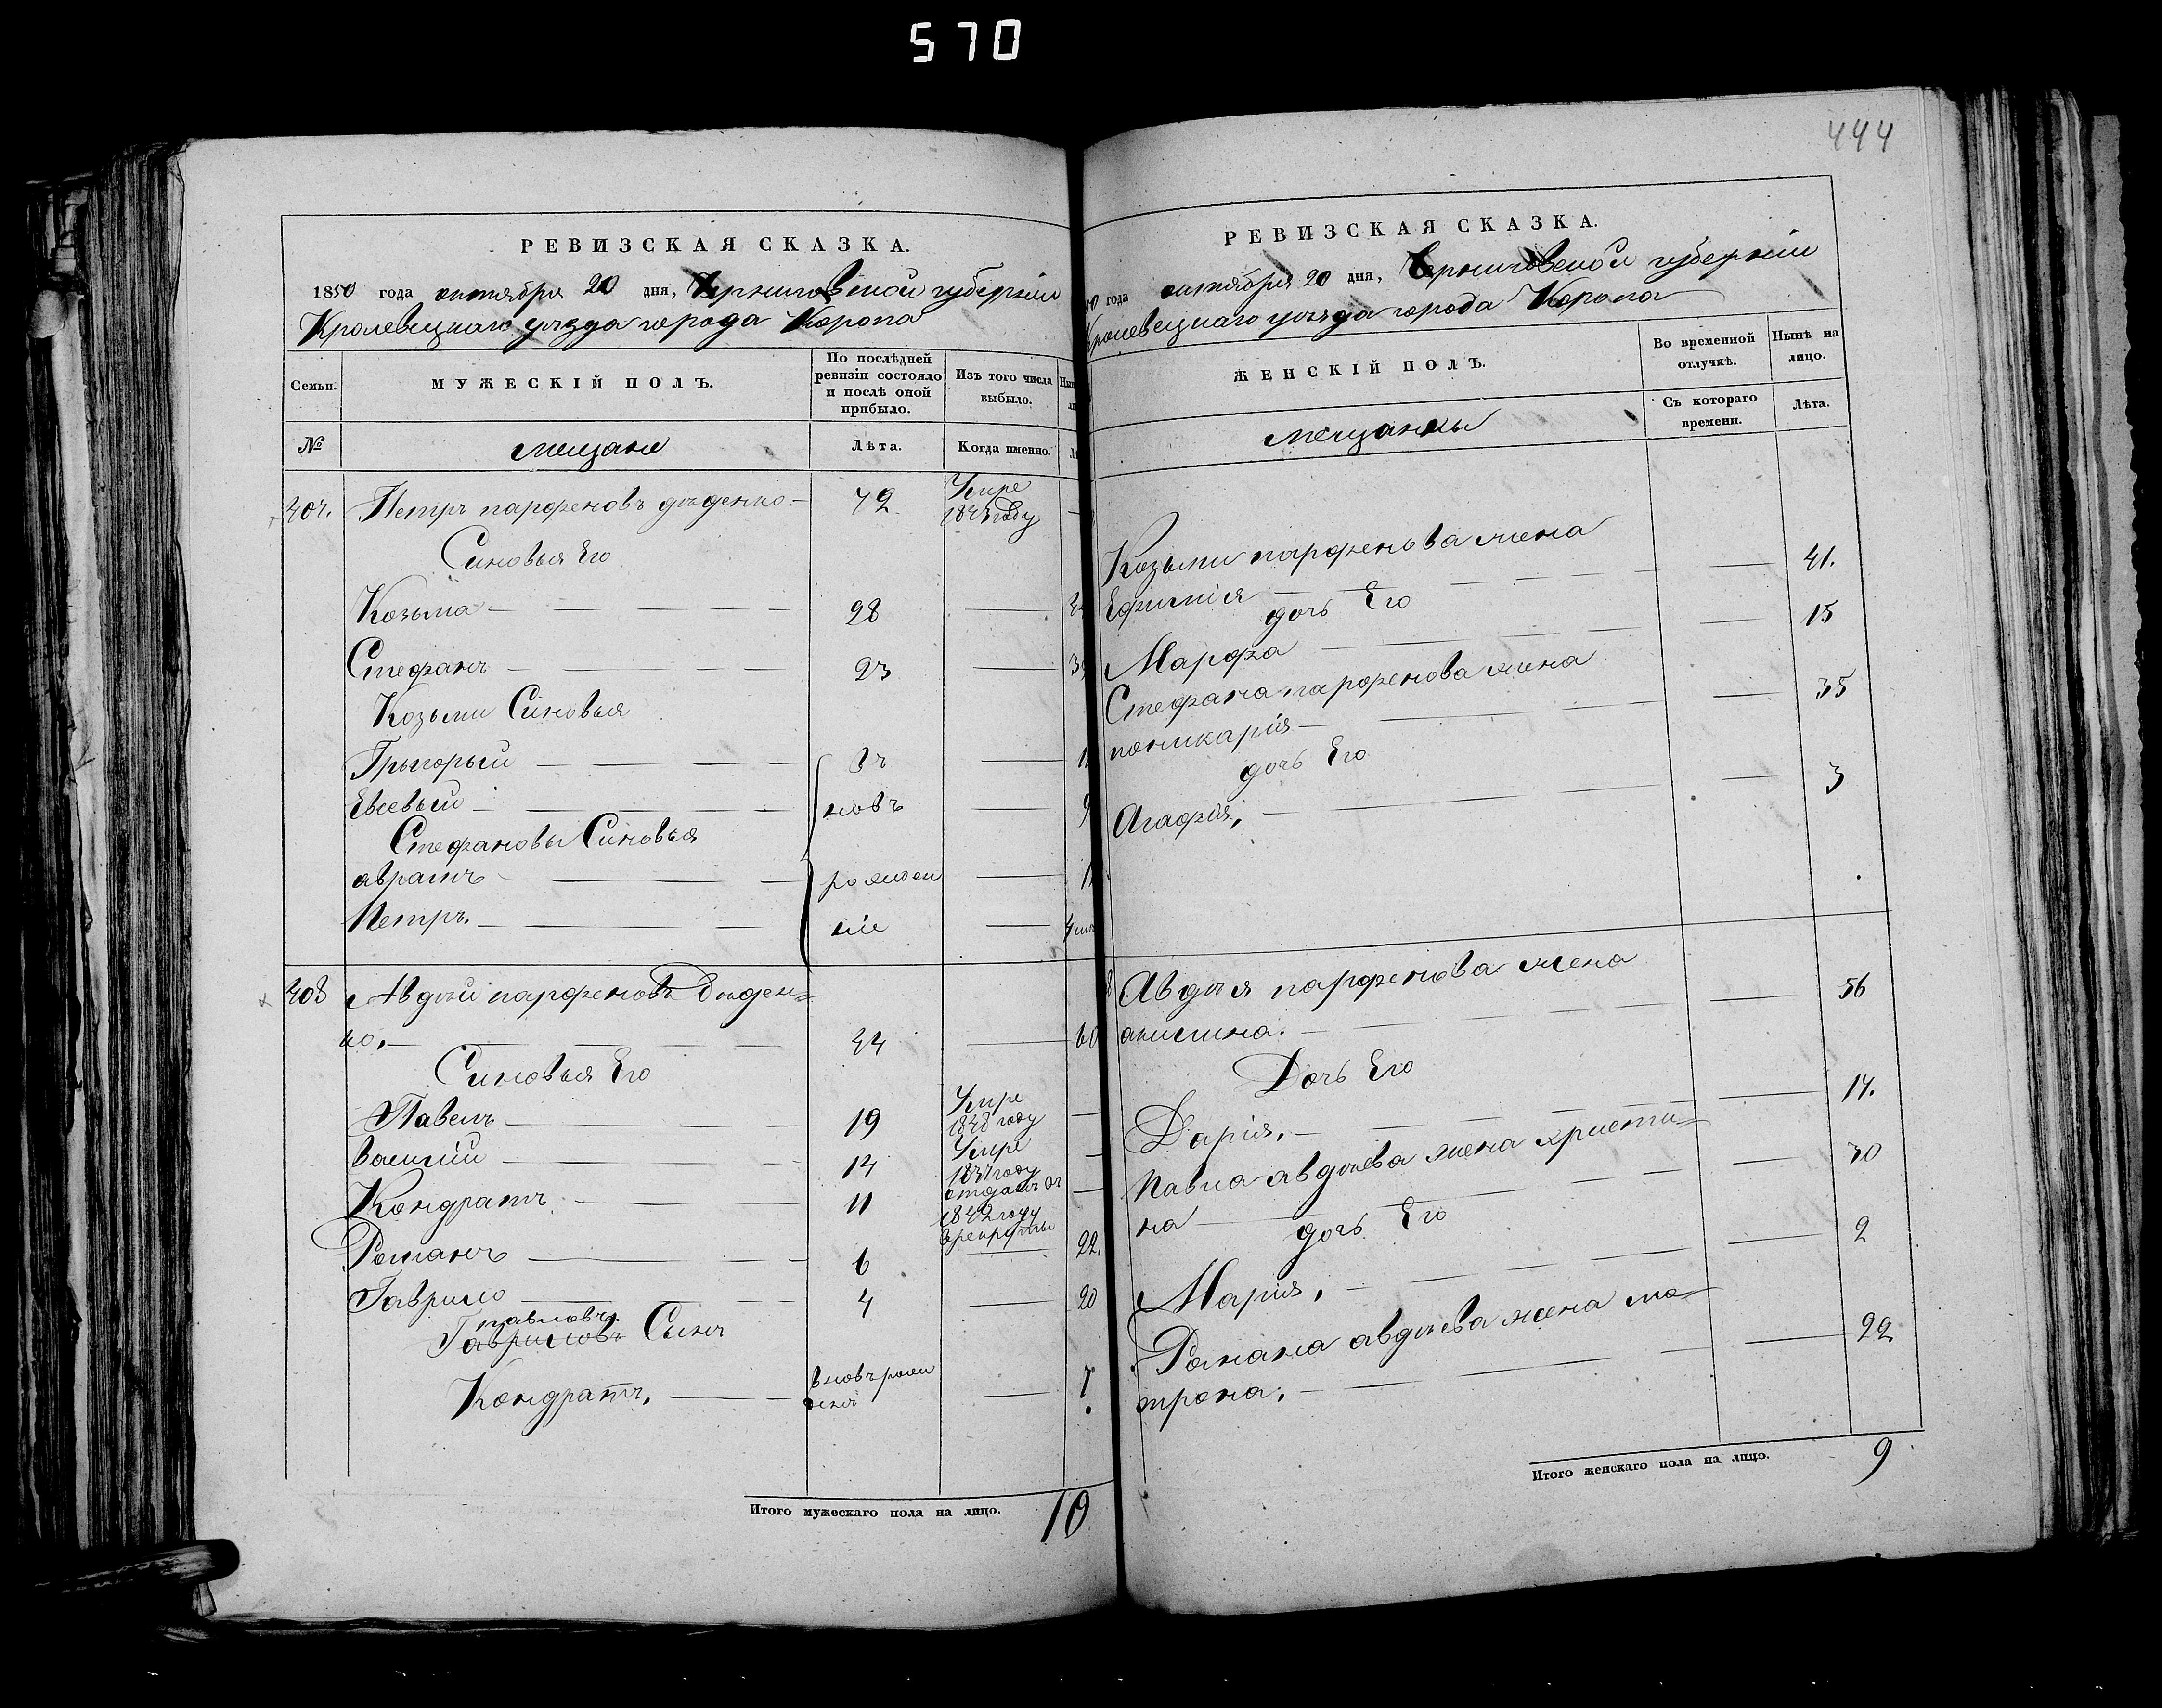 570
444
РЕВИЗСКАЯ СКАЗКА.
1850 года октября 20 дня, Черниговской губерніи
Кролевецкаго уезда города Коропа
Семьи.
МУЖЕСКІЙ ПОЛЪ.
По послѣдней ревизіи состояло и послѣ оной прибыло.
Изъ того числа выбыло.
№
мещане
Лѣта.
Когда именно.
Петръ парфеновъ
Умре
Синовья Его
Козьма 28
Стефанъ 23
Козьми Синовья
Григорый
Евсевый 9
новъ
Стефановы Синовья
аврамъ
рожден
Петръ.
ніе
408 Авдѣй парфеновъ Дѣден=
ко. 44 60
Синовья Его
Павелъ 19 Умре
году
Василій 14 Умре
году
Кондратъ 11 отданъ въ
1842 году
Романъ 6 22.
Гаврило 4 20
павловъ
Гавриловъ Сынъ
Кондратъ. вновь рож
денъ 7
Итого мужескаго пола на лицо. 10
РЕВИЗСКАЯ СКАЗКА.
года октября 20 дня, Черниговской губерніи
Кролевецкаго уезда города Коропа
ЖЕНСКІЙ ПОЛЪ.
Во временной отлучкѣ.
Нынѣ на лицо.
мещанки
Съ котораго времени.
Лѣта.
Козьми парфенова жена
Ефимія 41.
дочь Его
Марфа 15
Стефана парфенова жена
35
дочь Его
Агафія, 3
Авдѣя парфенова жена
акилина. 56
Дочь Его
Дарія, 14.
Павла авдѣева жена христи=
на 30
дочь Его
Марія, 2
Романа авдѣева жена ма=
трона, 22
Итого женскаго пола на лицо. 9